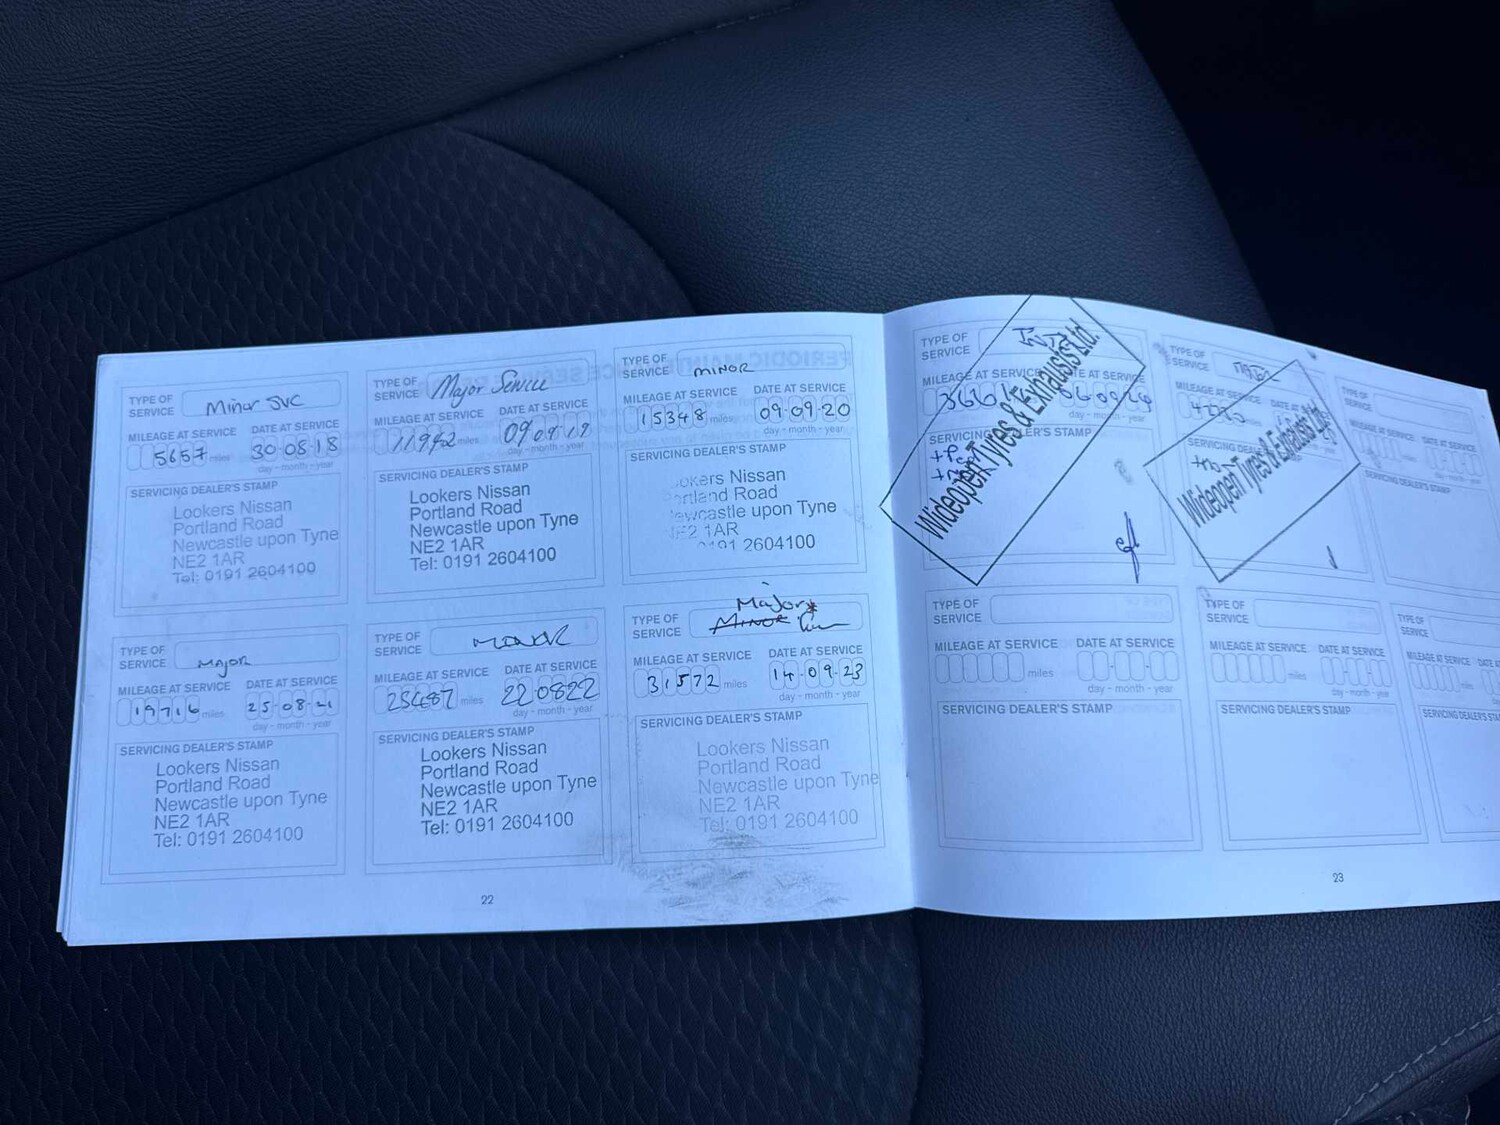 TYPE OF SERVICE Minor SVC
MILEAGE AT SERVICE DATE AT SERVICE
5657 miles 30-08-18
day - month - year
SERVICING DEALER'S STAMP
Lookers Nissan
Portland Road
Newcastle upon Tyne
NE2 1AR
Tel: 0191 2604100
TYPE OF SERVICE Major Service
MILEAGE AT SERVICE DATE AT SERVICE
11942 miles 09 08 19
day - month - year
SERVICING DEALER'S STAMP
Lookers Nissan
Portland Road
Newcastle upon Tyne
NE2 1AR
Tel: 0191 2604100
TYPE OF SERVICE MINOR
MILEAGE AT SERVICE DATE AT SERVICE
15348 miles 09-09-20
day - month - year
SERVICING DEALER'S STAMP
okers Nissan
ortland Road
ewcastle upon Tyne
NE2 1AR
0191 2604100
TYPE OF SERVICE Major
MILEAGE AT SERVICE DATE AT SERVICE
19716 miles 25-08-21
day - month - year
SERVICING DEALER'S STAMP
Lookers Nissan
Portland Road
Newcastle upon Tyne
NE2 1AR
Tel: 0191 2604100
TYPE OF SERVICE
MILEAGE AT SERVICE DATE AT SERVICE
miles 22-0822
day - month - year
SERVICING DEALER'S STAMP
Lookers Nissan
Portland Road
Newcastle upon Tyne
NE2 1AR
Tel: 0191 2604100
Major*
TYPE OF SERVICE MINOR
MILEAGE AT SERVICE DATE AT SERVICE
31572 miles 14-09-23
day - month - year
SERVICING DEALER'S STAMP
Lookers Nissan
Portland Road
Newcastle upon Tyne
NE2 1AR
Tel: 0191 2604100
22
TYPE OF SERVICE
MILEAGE AT SERVICE DATE AT SERVICE
06 09 24
day - month - year
SERVICING DEALER'S STAMP
Wideopen Tyres & Exhausts Ltd.
TYPE OF SERVICE
MILEAGE AT SERVICE
SERVICING DEALER'S STAMP
Wideopen Tyres & Exhausts Ltd.
TYPE OF SERVICE
MILEAGE AT SERVICE DATE AT SERVICE
SERVICING DEALER'S STAMP
TYPE OF SERVICE
MILEAGE AT SERVICE DATE AT SERVICE
miles
day - month - year
SERVICING DEALER'S STAMP
TYPE OF SERVICE
MILEAGE AT SERVICE DATE AT SERVICE
miles
day - month - year
SERVICING DEALER'S STAMP
TYPE OF SERVICE
MILEAGE AT SERVICE
miles
SERVICING DEALER'S STA
23